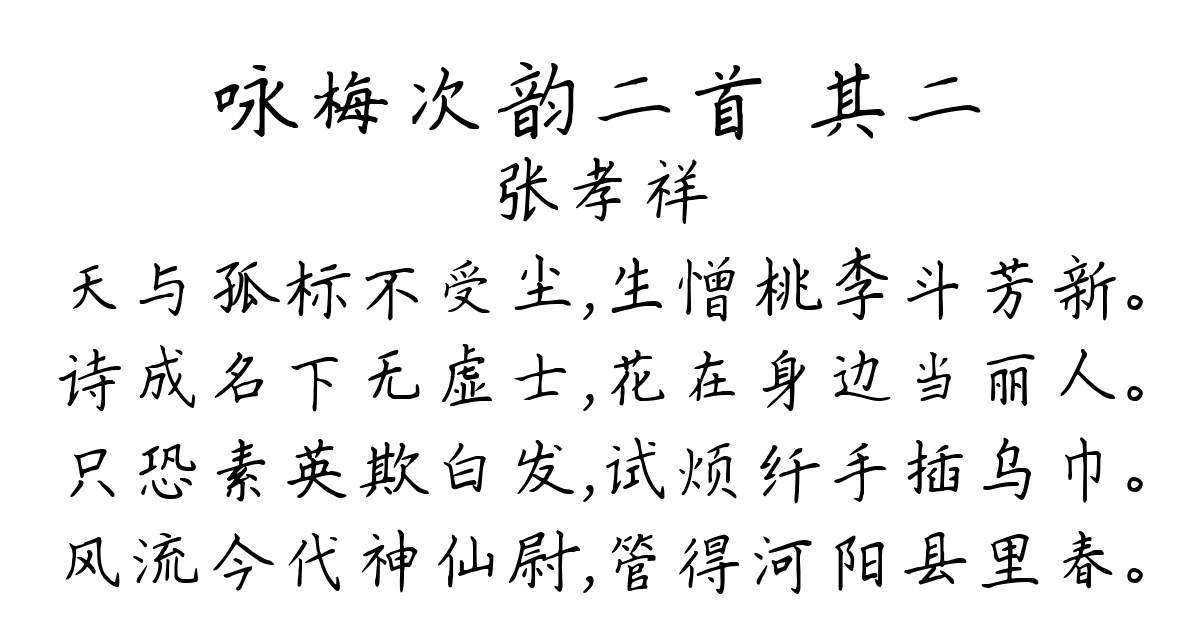 咏梅次韵二首 其二
张孝祥
天与孤标不受尘,生憎桃李斗芳新。
诗成名下无虚士,花在身边当丽人。
只恐素英欺白发,试烦纤手插乌巾。
风流今代神仙尉,管得河阳县里春。